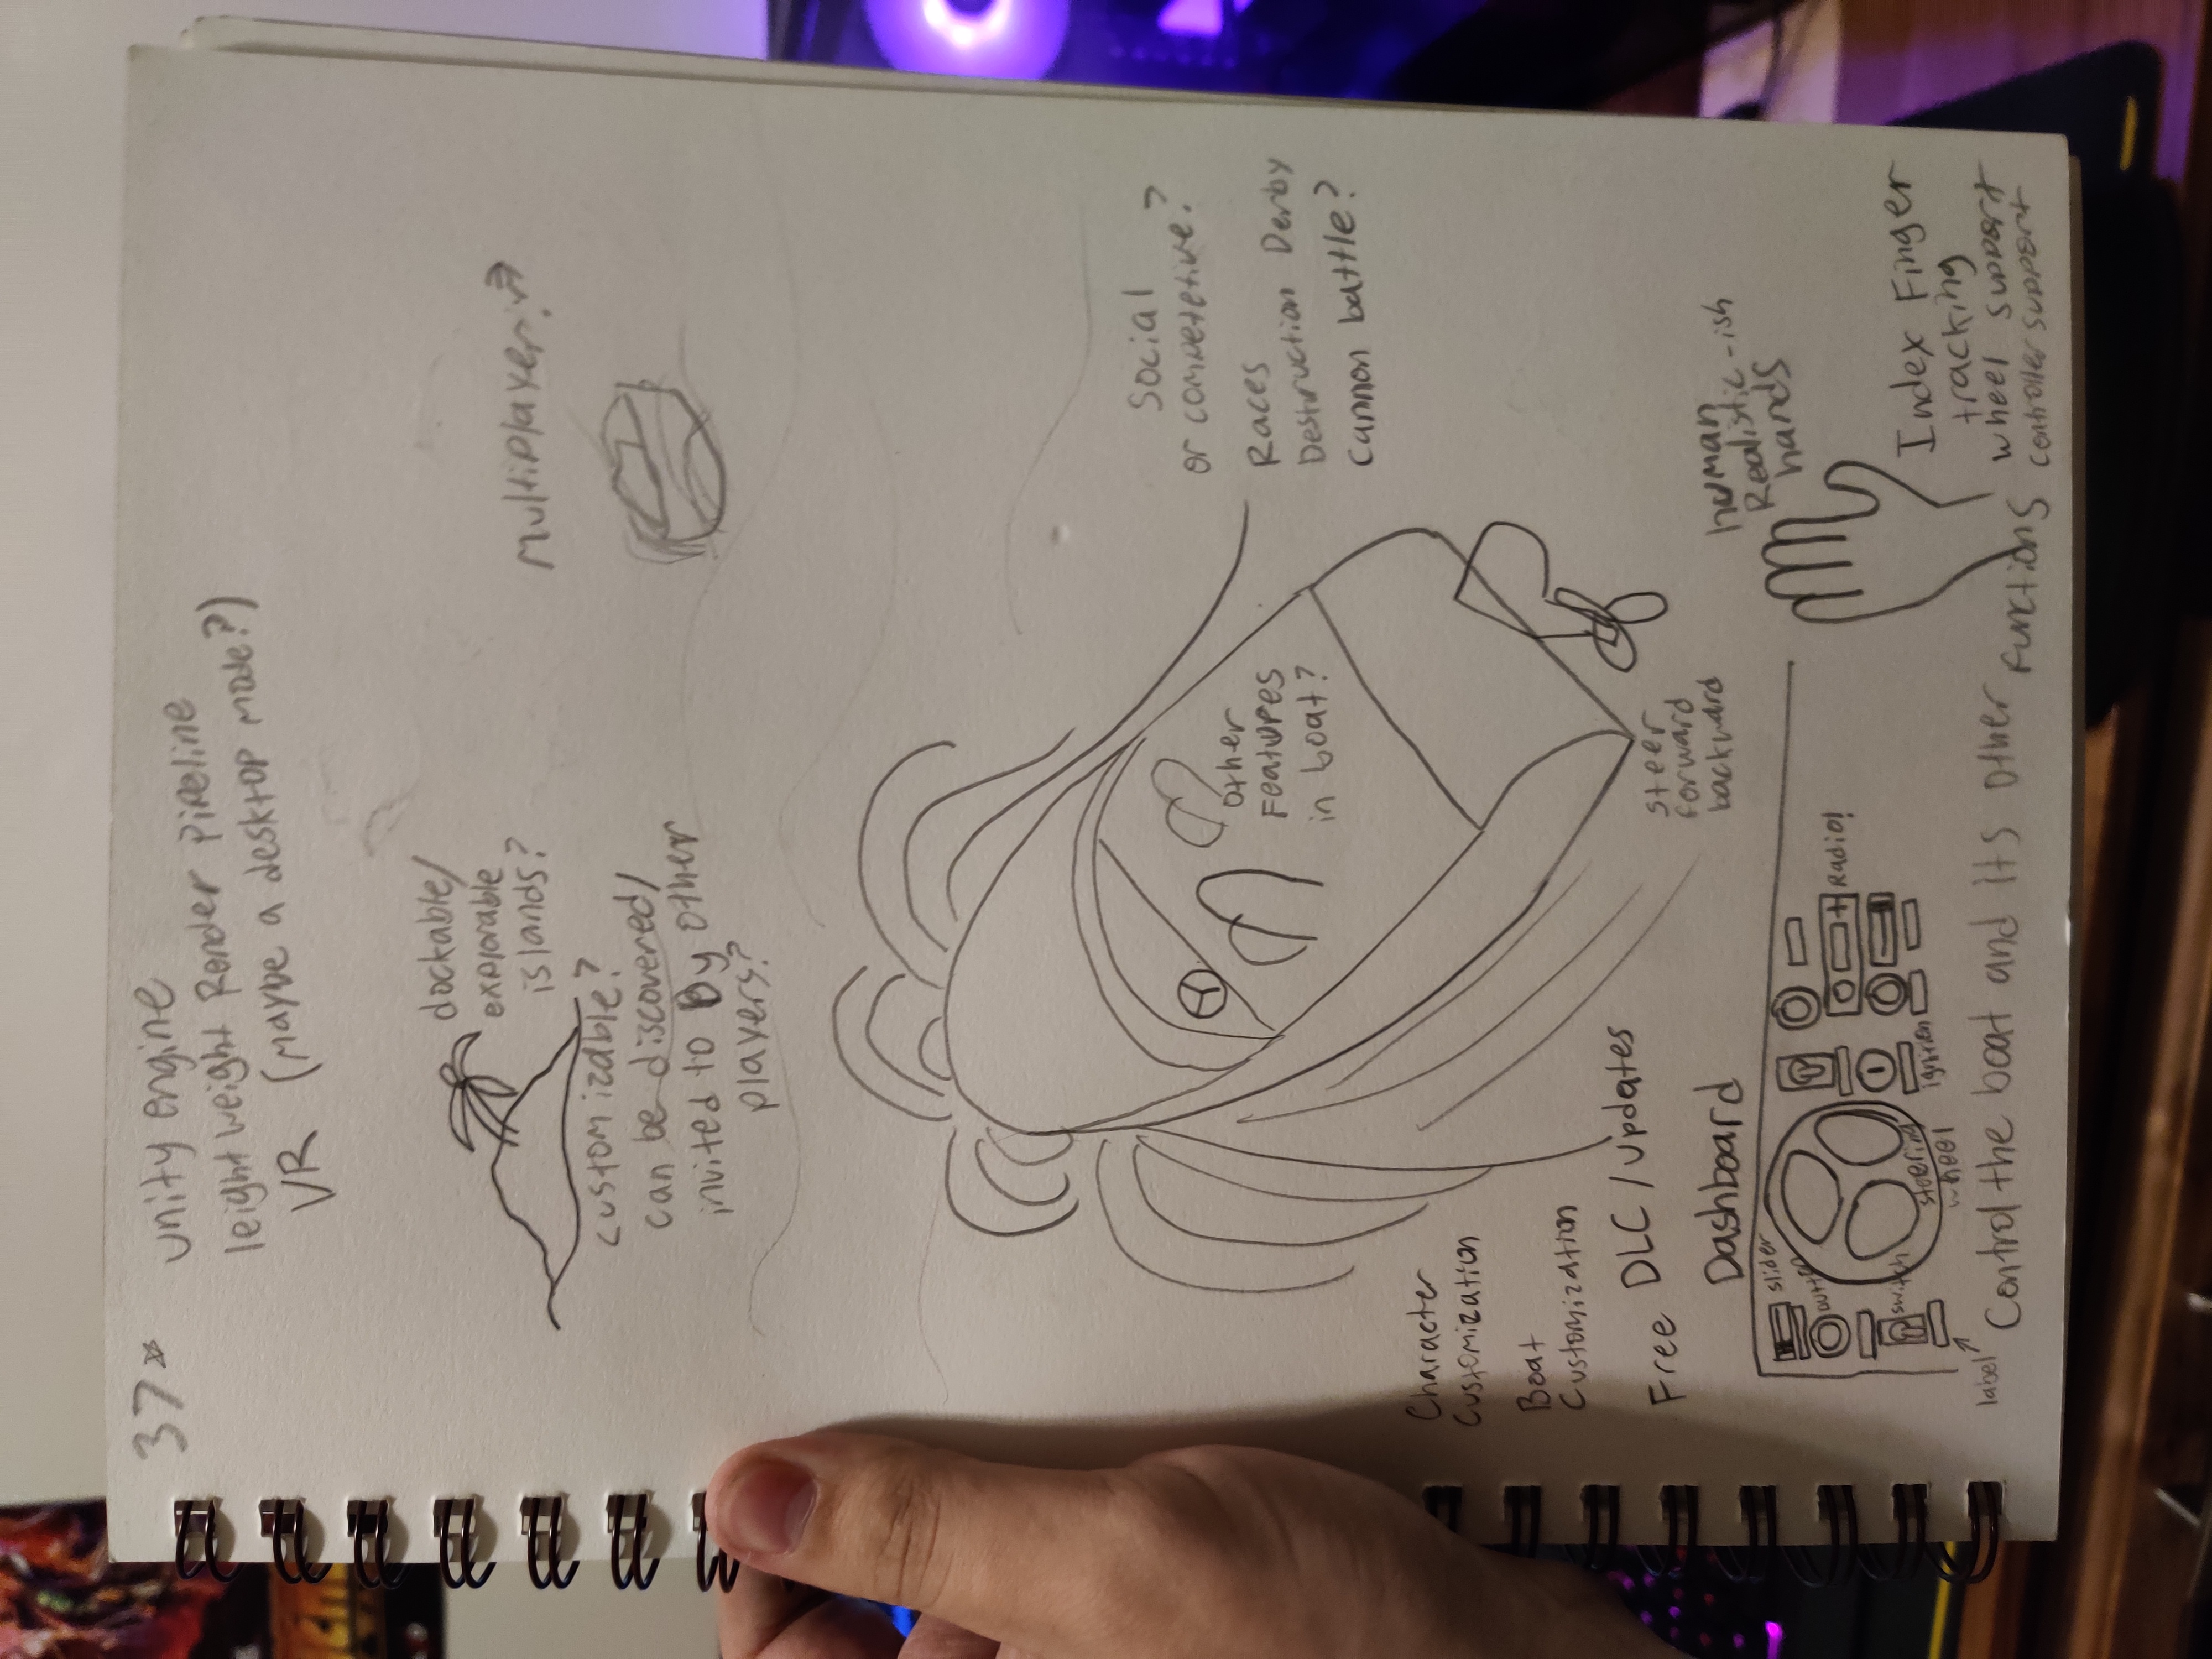 37
unity engine
leightweight Render Pipeline
VR (maybe a desktop mode?)
dockable/
explorable
islands?
customizable?
can be discovered/
invited to By other
players?
Multiplayer?
Social
or competetive?
Races
Destruction Derby
Cannon battle?
other
Features
in boat?
Character
Customization
Boat
Customization
Free DLC / updates
steer
forward
backward
Dashboard
slider
button
switch
label
steering
wheel
ignition
Radio!
human
Realistic-ish
hands
Index Finger
tracking
wheel support
controller support
Control the boat and its other functions